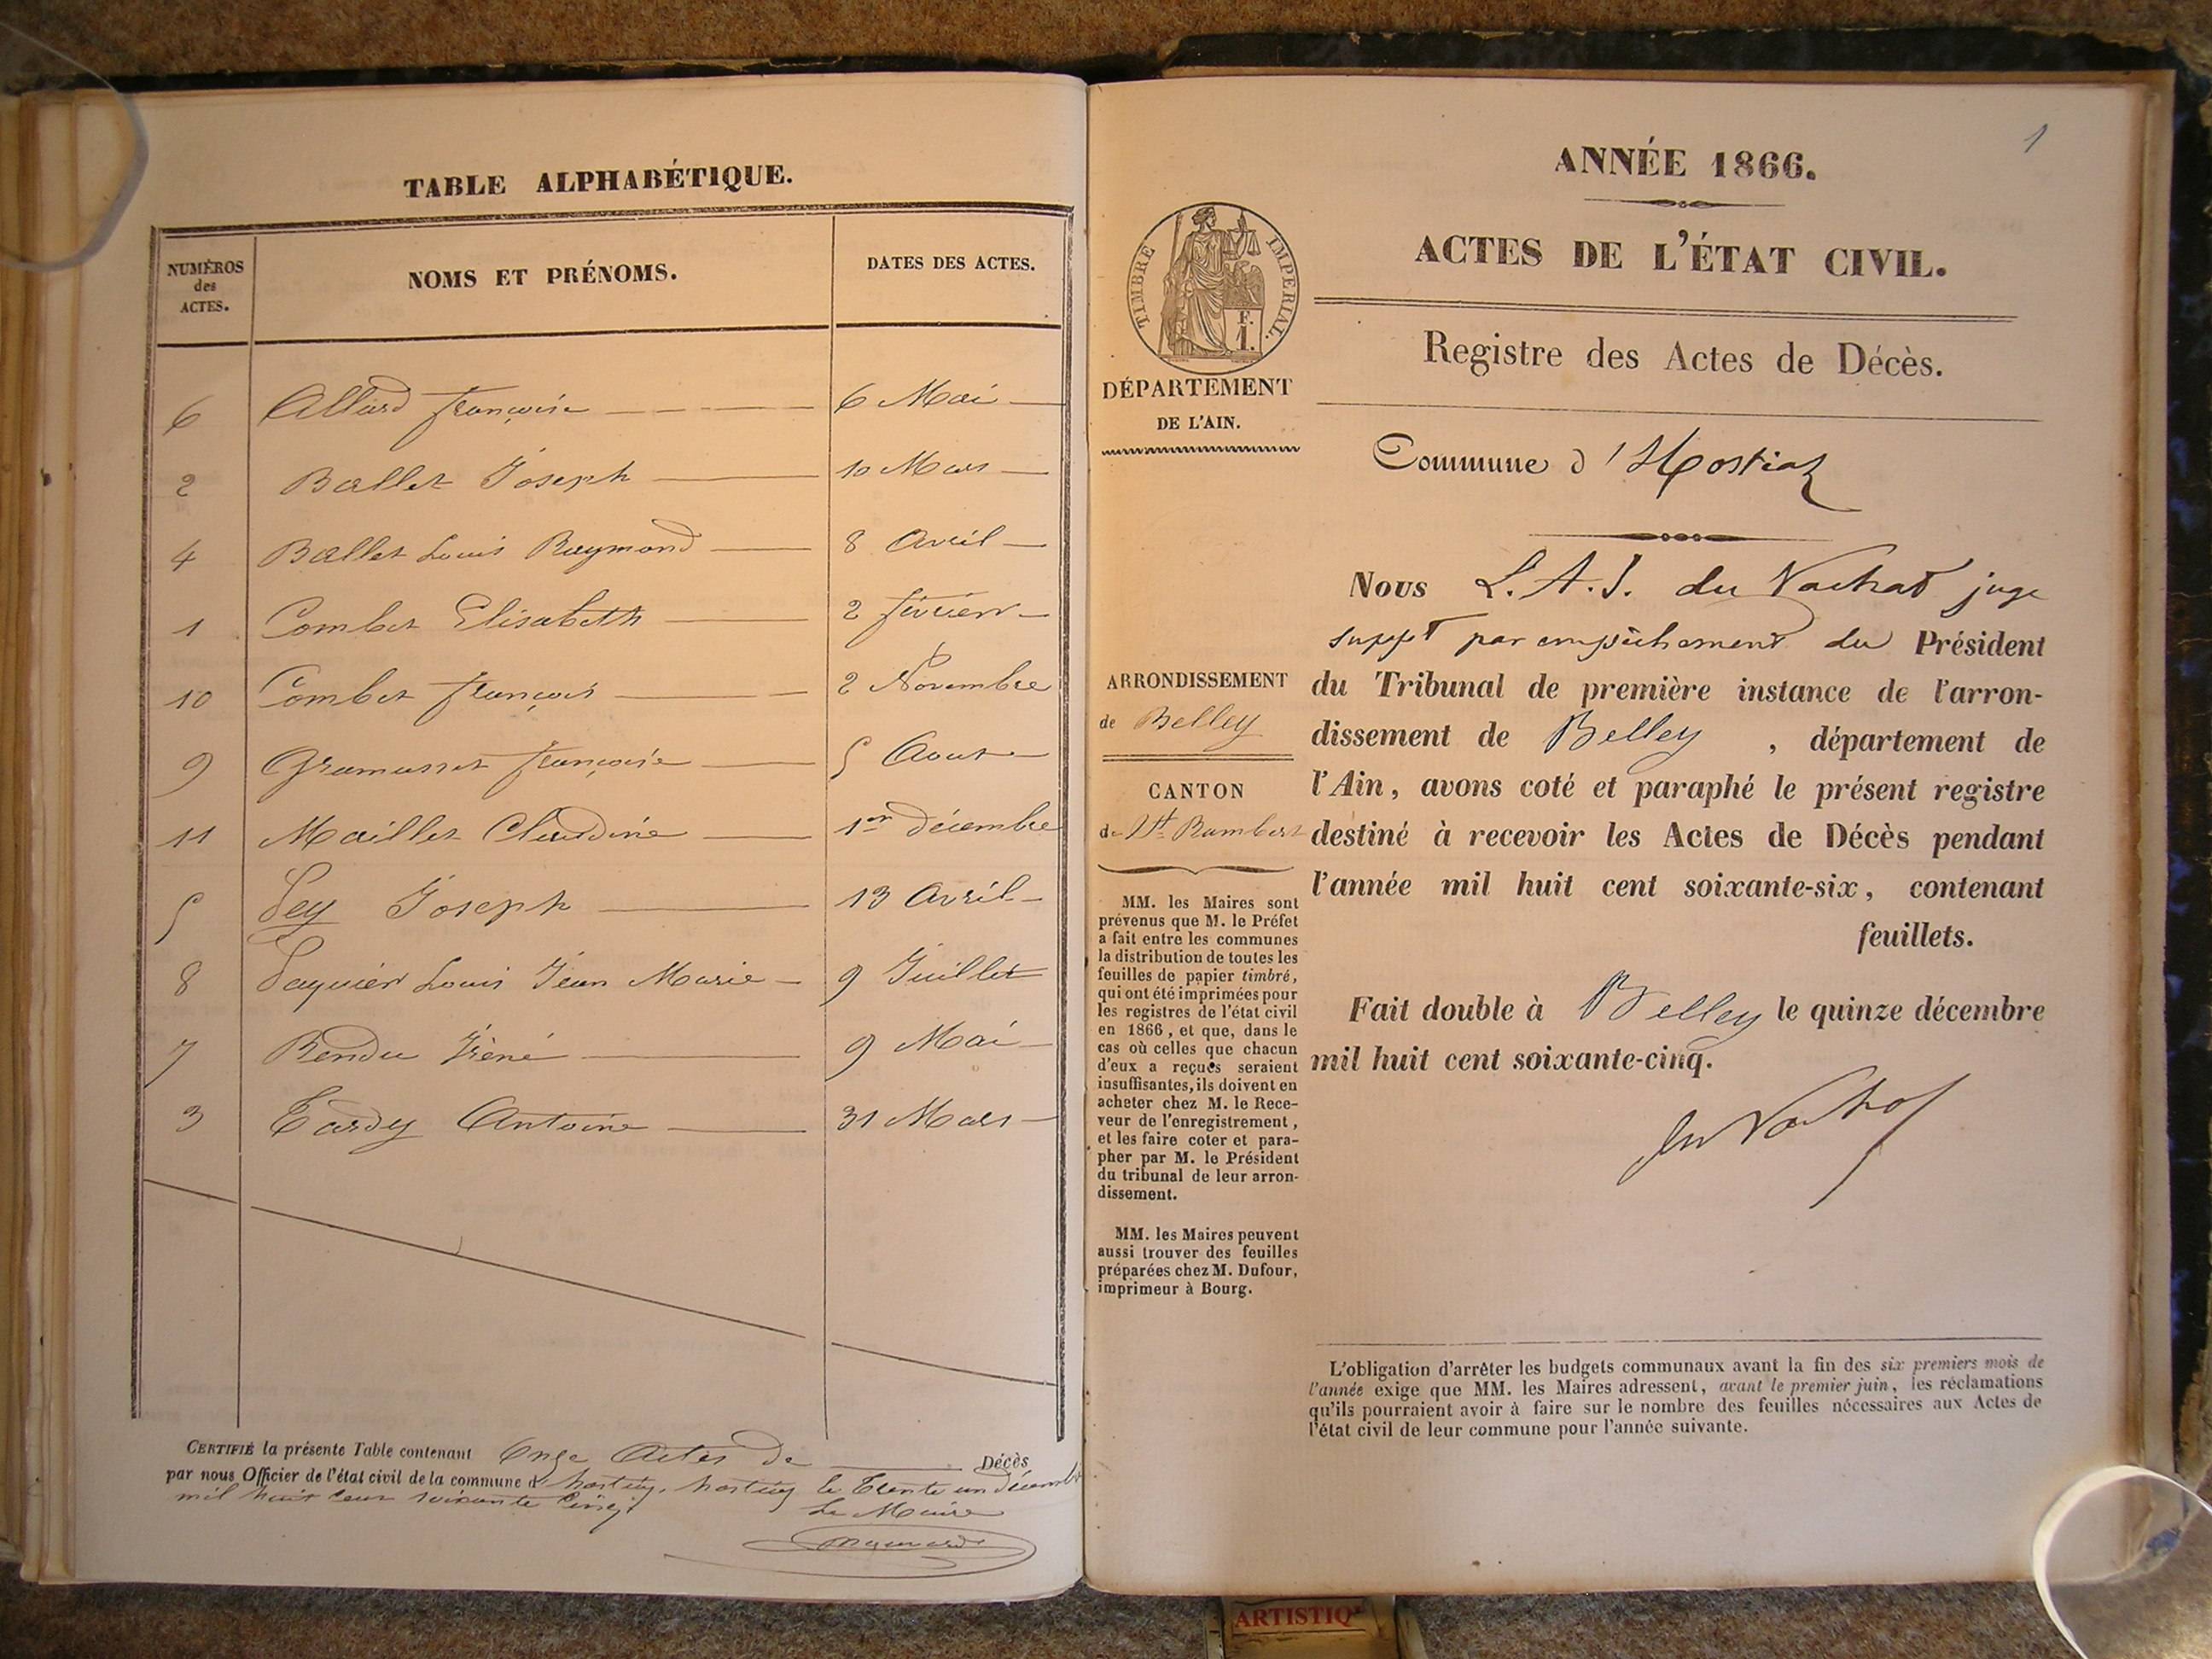 TABLE ALPHABÉTIQUE.
NUMÉROS
des
ACTES.
NOMS ET PRÉNOMS.
DATES DES ACTES.
6 Allard françoise 6 Mai
2 Ballet Joseph 10 Mars
4 Ballet Louis Raymond 8 Avril
1 Combet Elisabeth 2 février
10 Combet françois 2 Novembre
9 Gramusset françoise 5 Aout
11 Maillet Claudine 1er décembre
5 Pey Joseph 13 Avril
8 Paquier Louis Jean Marie 9 Juillet
7 Rendu Iréné 9 Mai
3 Tardy Antoine 31 Mars
CERTIFIÉ la présente Table contenant Onze Actes de Décès
par nous Officier de l'état civil de la commune d' hostiaz, hostiaz le Trente un décembre
mil huit cent soixante Cinq
Le Maire
1
ANNÉE 1866.
ACTES DE L'ÉTAT CIVIL.
Registre des Actes de Décès.
Commune d'Hostiaz
Nous L. A. J. du Vachat juge
suppt par empêchement du Président
du Tribunal de première instance de l'arron-
dissement de Belley, département de
l'Ain, avons coté et paraphé le présent registre
destiné à recevoir les Actes de Décès pendant
l'année mil huit cent soixante-six, contenant
feuillets.
Fait double à Belley le quinze décembre
mil huit cent soixante-cinq.
du Vachat
TIMBRE IMPERIAL.
F.
1.
DÉPARTEMENT
DE L'AIN.
ARRONDISSEMENT
de Belley
CANTON
de St Rambert
MM. les Maires sont
prévenus que M. le Préfet
a fait entre les communes
la distribution de toutes les
feuilles de papier timbré,
qui ont été imprimées pour
les registres de l'état civil
en 1866, et que, dans le
cas où celles que chacun
d'eux a reçues seraient
insuffisantes, ils doivent en
acheter chez M. le Rece-
veur de l'enregistrement,
et les faire coter et para-
pher par M. le Président
du tribunal de leur arron-
dissement.
MM. les Maires peuvent
aussi trouver des feuilles
préparées chez M. Dufour,
imprimeur à Bourg.
L'obligation d'arrêter les budgets communaux avant la fin des six premiers mois de
l'année exige que MM. les Maires adressent, avant le premier juin, les réclamations
qu'ils pourraient avoir à faire sur le nombre des feuilles nécessaires aux Actes de
l'état civil de leur commune pour l'année suivante.
ARTISTIQ